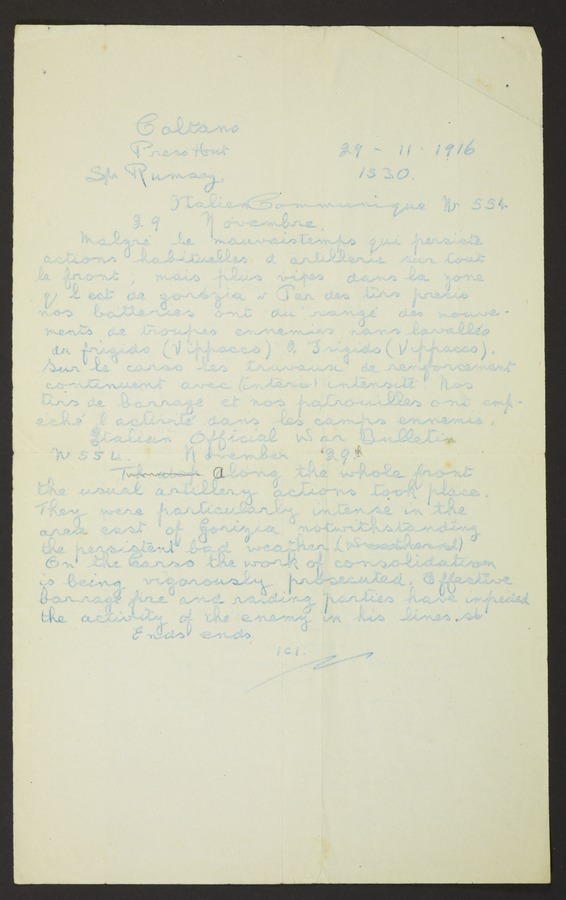 Coltano
Press Hut 29 - 11 - 1916
Sply Rumsey. 1530.
Italien Communique Nr 554
29 Novembre.
Malgré le mauvaistemps qui persiste
actions habituelles d artillerie sur tout
le front; mais plus vives dans la zone
l est de gorizia Par des tirs precis
nos batteries ont du rangé des mouve-
ments de troupes ennemies dans lavallée
du frigido (Vippacco) Frigido (Vippacco).
Sur le carso les travaux de renforcement
continuent avec (intens) intensite Nos
tirs de barrage et nos patrouilles ont emp-
eché l activité dans les camps ennemis.
Italien Official War Bulletin
Nr 554. November 29th
along the whole front
the usual artillery actions took place.
They were particularly intense in the
area east of Gorizia notwithstanding
the persistent bad weather
On the Carso the work of consolidation
is being vigorously prosecuted. Effective
barrage fire and raiding parties have impeded
the activity of the enemy in his lines.
Ends ends